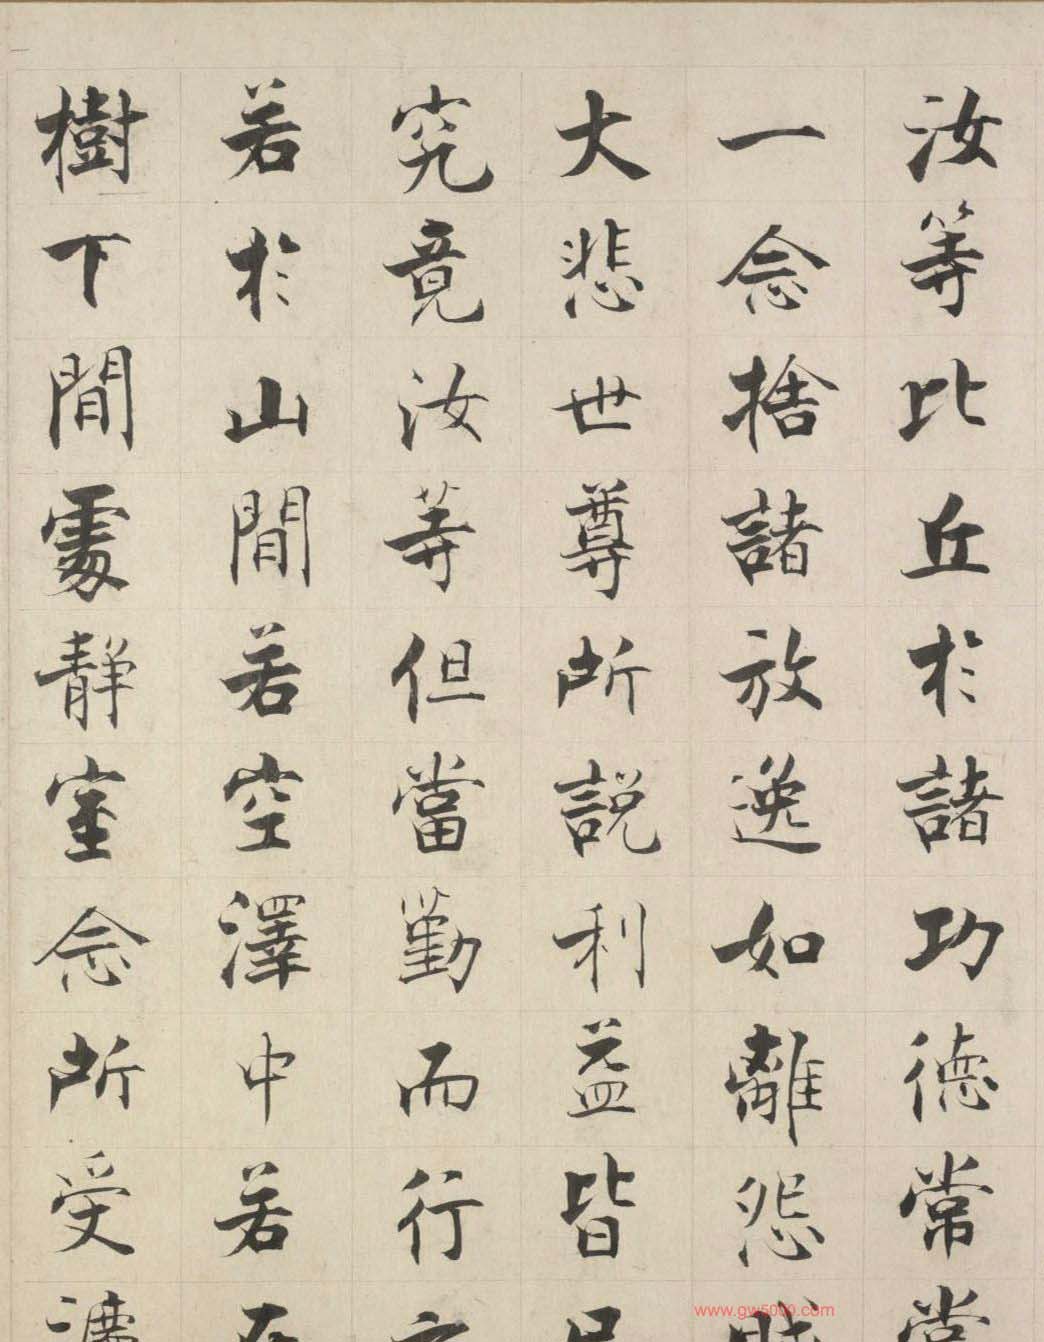 汝等比丘於諸功德常當
一念捨諸放逸如離怨賊
大悲世尊所説利益皆是
究竟汝等但當勤而行之
若於山間若空澤中若在
樹下間處靜室念所受法
www.gw5000.com